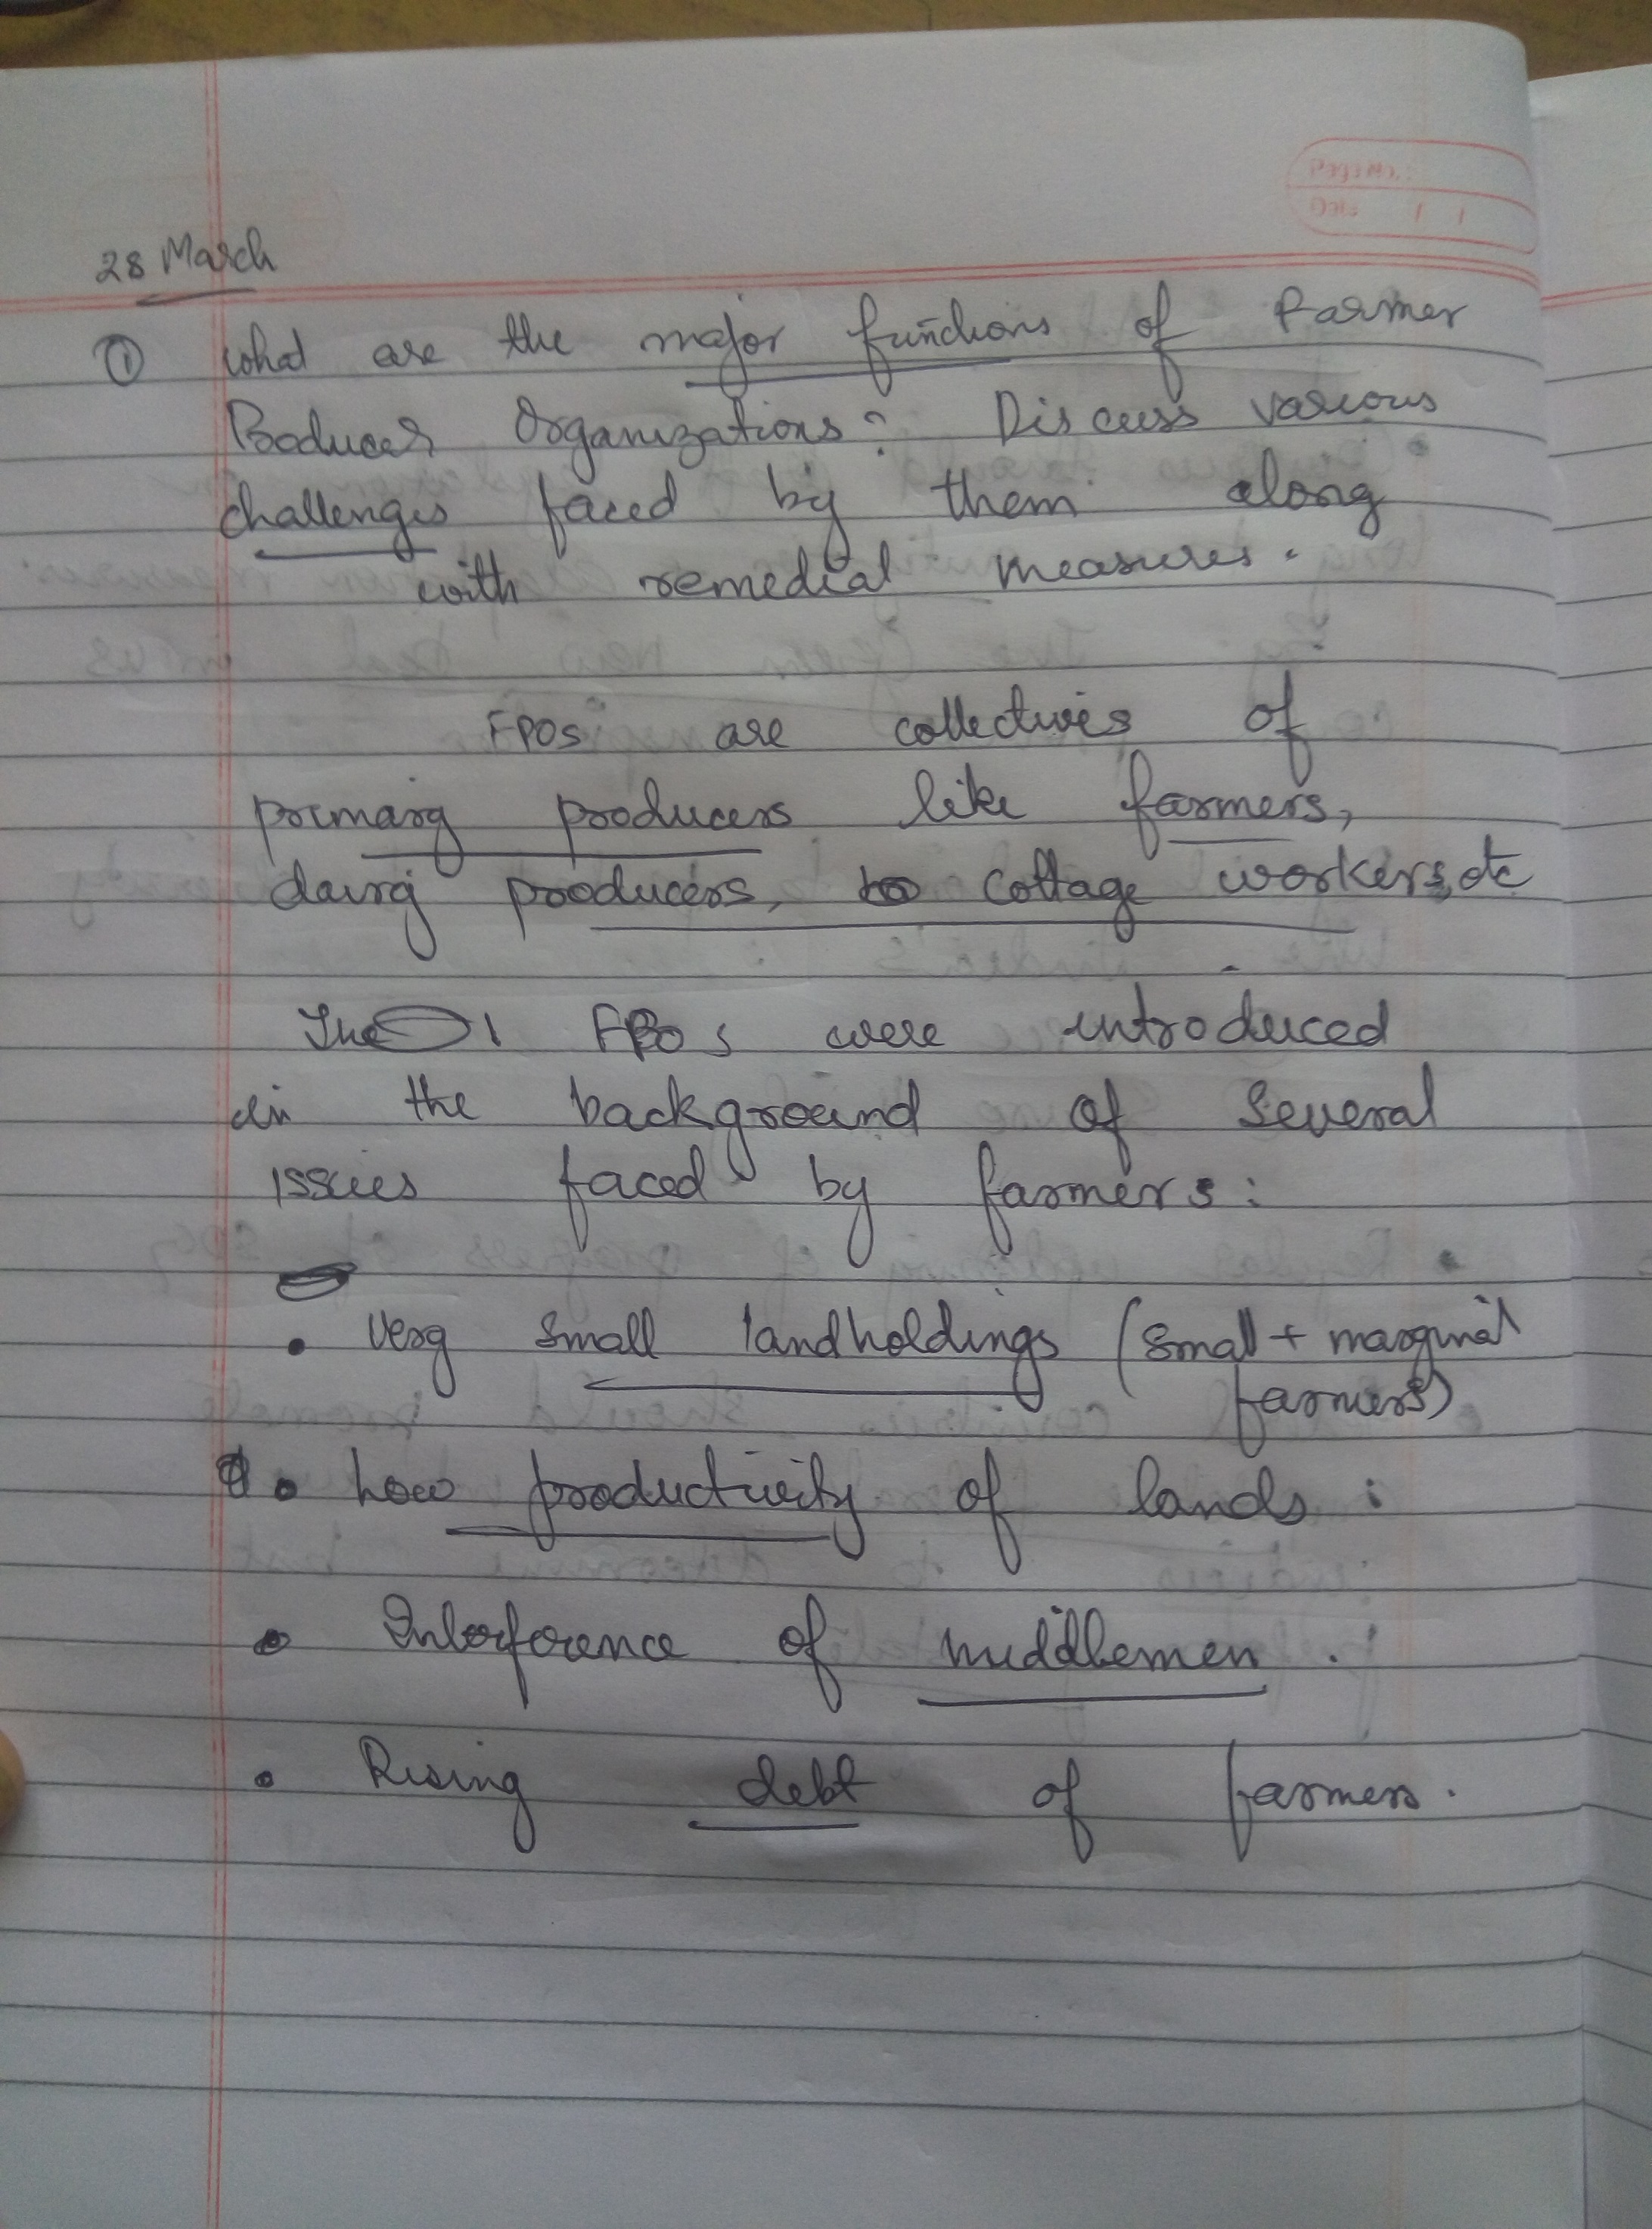 Page No.:
Date: / /
28 March
① What are the major functions of Farmer
Producer Organizations? Discuss various
challenges faced by them along
with remedial measures.
FPOs are collectives of
primary producers like farmers,
dairy producers, cottage workers, etc
The FPOs were introduced
in the background of several
issues faced by farmers:
• Very small landholdings (small + marginal
farmers)
• Low productivity of lands:
• Interference of middlemen.
• Rising debt of farmers.